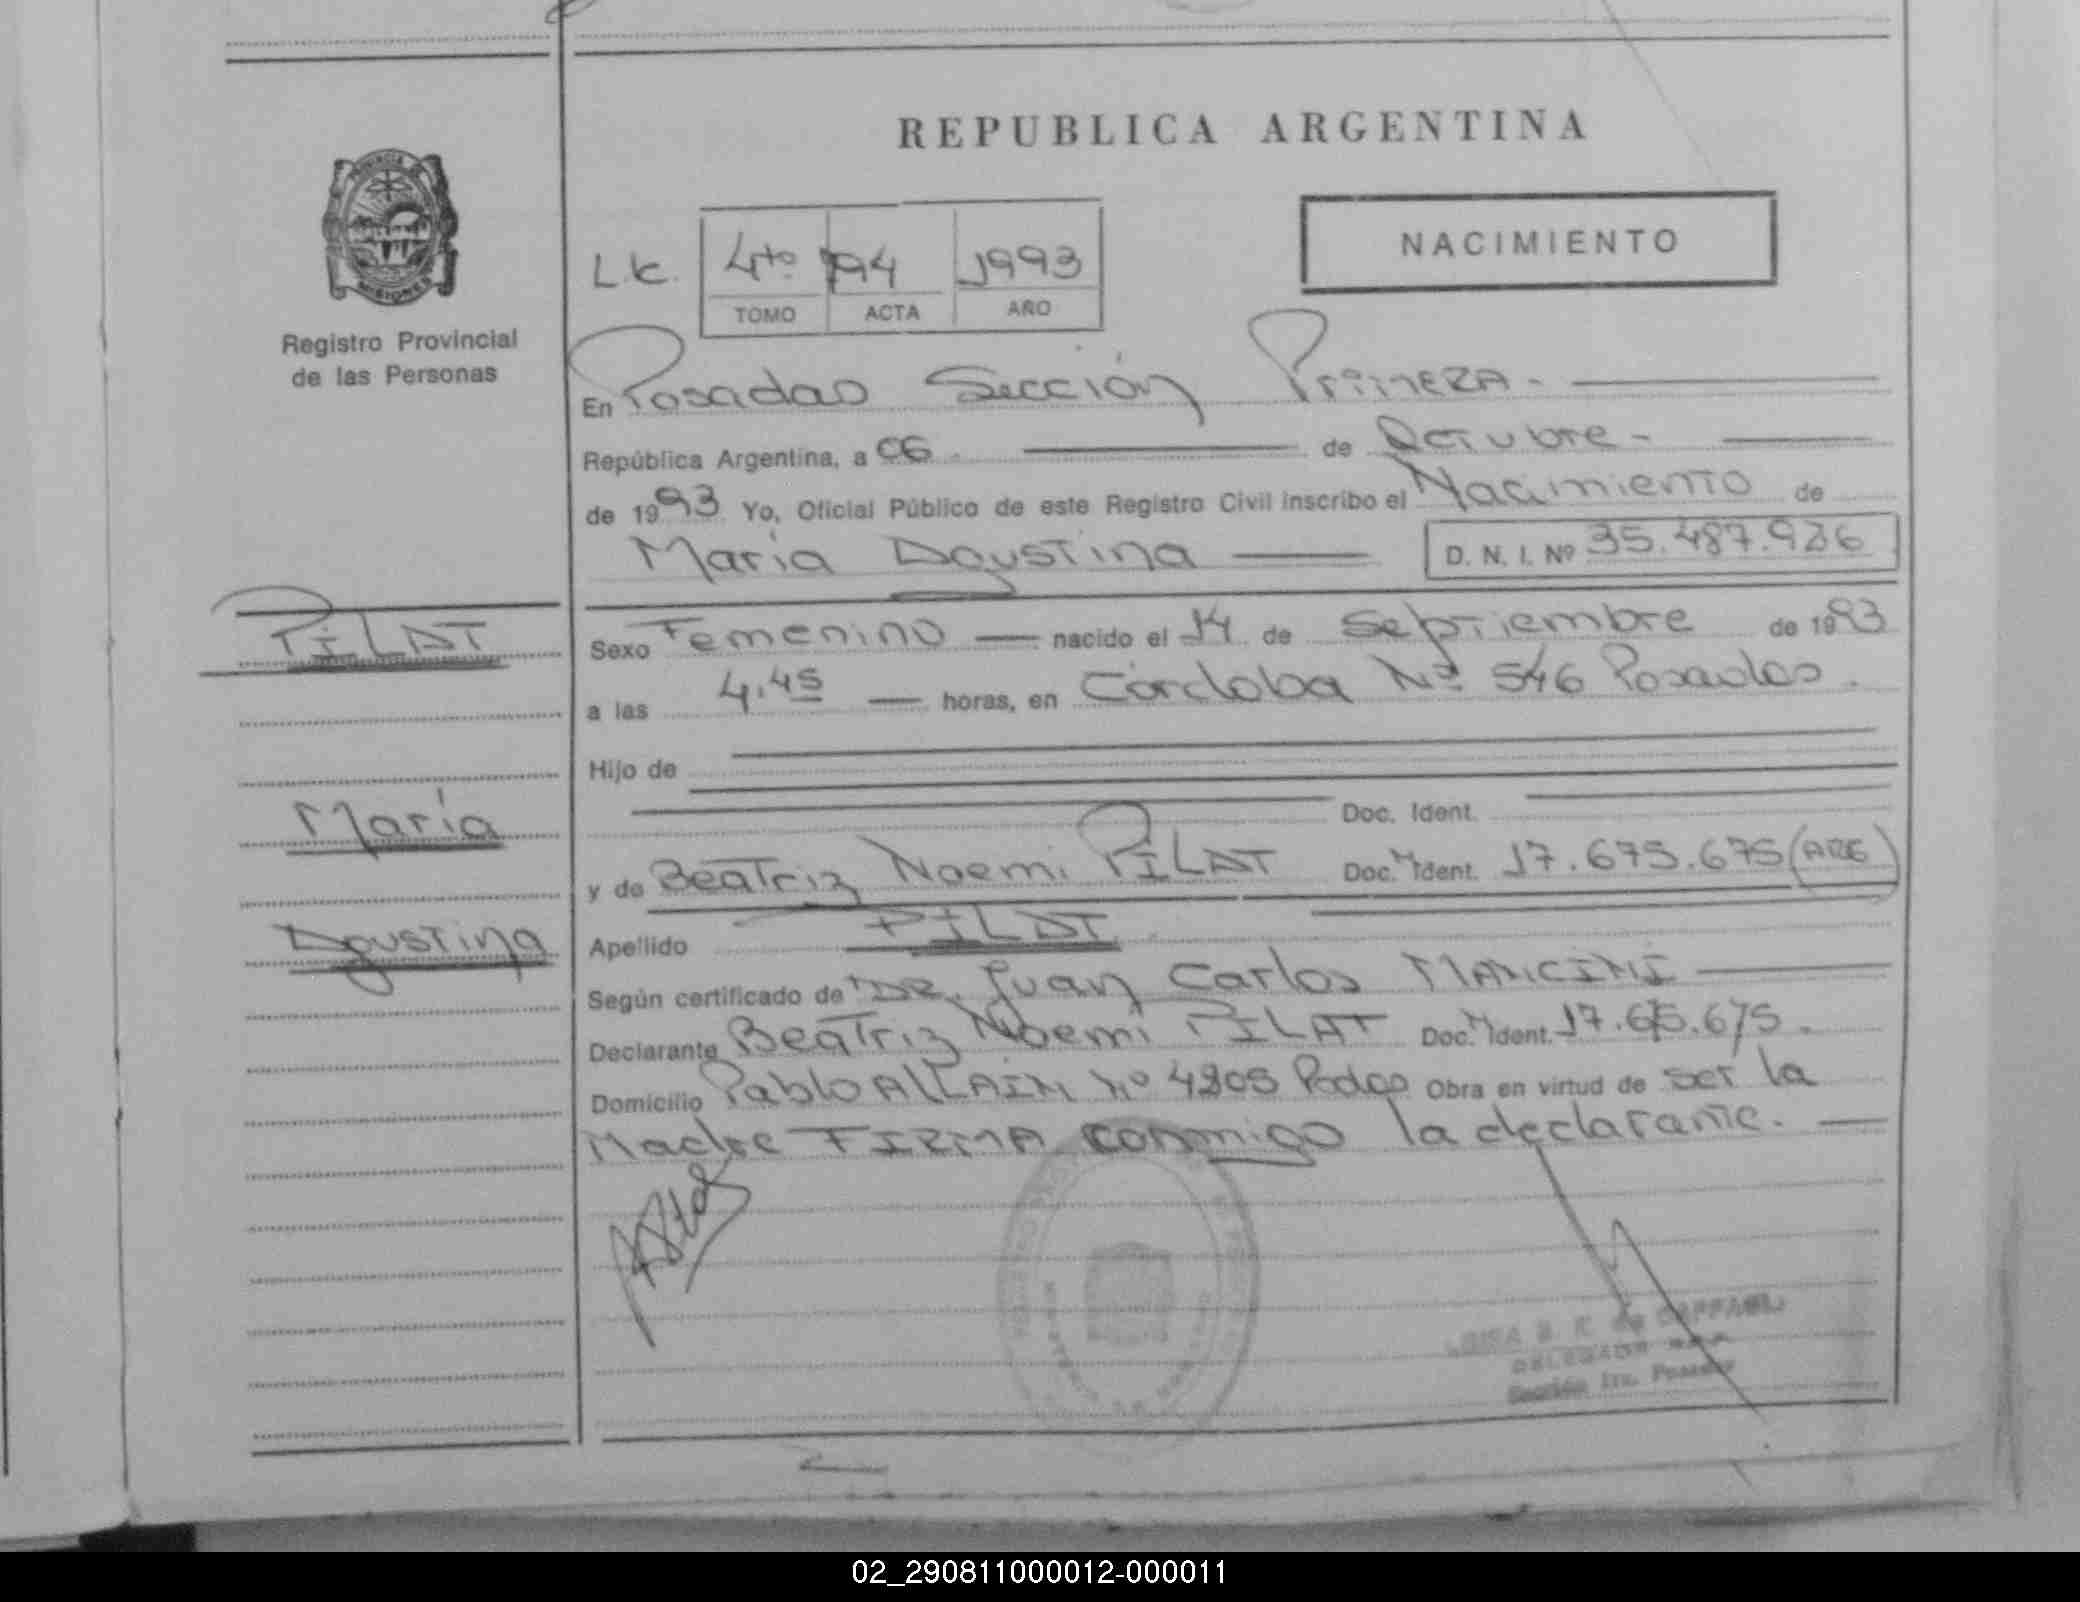 REPUBLICA ARGENTINA
NACIMIENTO
L.C. 4to 794 1993
TOMO ACTA AÑO
Registro Provincial
de las Personas
En Posadas Sección Primera.
República Argentina, a 06 de Octubre
de 1993 Yo, Oficial Público de este Registro Civil inscribo el Nacimiento de
María Agustina D. N. I. Nº 35.487.926
PILAT
Sexo Femenino nacido el 14 de Septiembre de 1993
a las 4,45 horas, en Córdoba Nº 546 Posadas.
Hijo de
Doc. Ident.
María
y de Beatriz Noemi PILAT Doc. Ident. 17.675.675 (ARG)
Agustina
Apellido PILAT
Según certificado de Dr. Juan Carlos MANCINI
Declarante Beatriz Noemi PILAT Doc. Ident. 17.675.675.
Domicilio Pablo ALLAIN Nº 4205 Pdas Obra en virtud de ser la
Madre FIRMA conmigo la declarante.
DELEGADA
Sección 1ra. Posadas
02_290811000012-000011